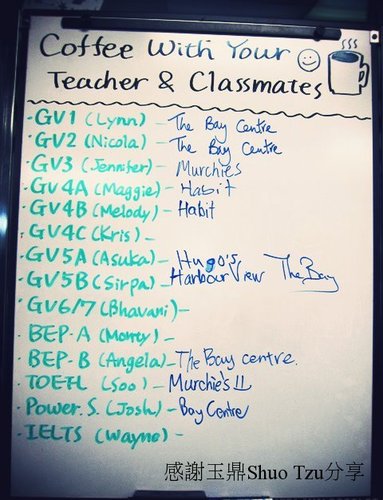 Coffee With Your
Teacher & Classmates
- GV1 (Lynn) - The Bay Centre
- GV2 (Nicola) - The Bay Centre
- GV3 (Jennifer) - Murchies
- GV4A (Maggie) - Habit
- GV4B (Melody) - Habit
- GV4C (Kris) -
- GV5A (Asuka) - Hugo's
- GV5B (Sirpa) - Harbour View The Bay
- GV6/7 (Bhavani) -
- BEP-A (Morrey) -
- BEP-B (Angela) - The Bay centre.
- TOEFL (Soo) - Murchie's !!
- Power S. (Josh) - Bay Centre
- IELTS (Wayne) -
感謝玉鼎Shuo Tzu分享